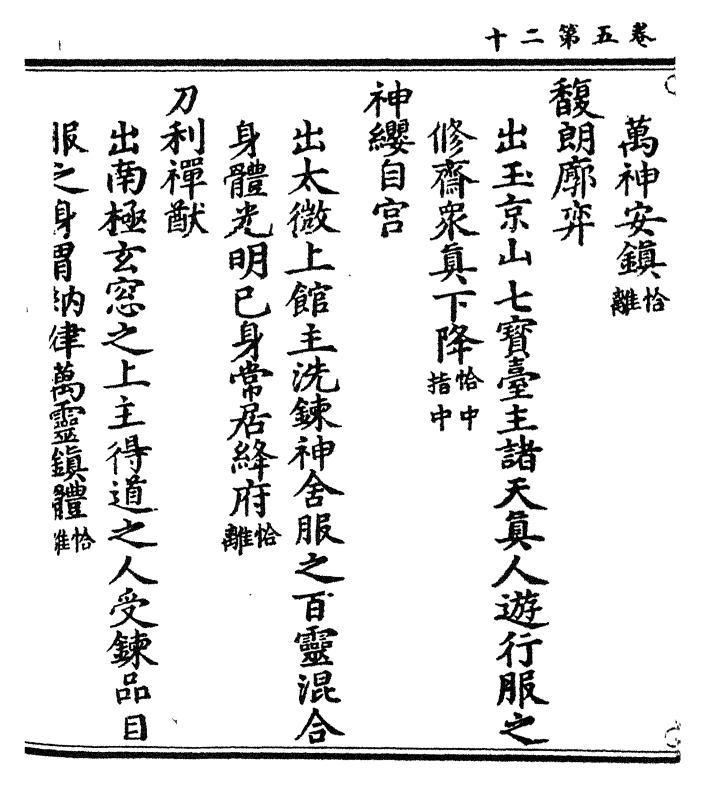 卷五第二十
萬神安鎮恰離
馥朗廓弈
出玉京山七寶臺主諸天真人遊行服之
修齋衆真下降恰中指中
神纓自宮
出太微上館主洗鍊神舍服之百靈混合
身體光明已身常居絳府恰離
刀利禪猷
出南極玄窓之上主得道之人受鍊品目
服之身胃納律萬靈鎮體恰離